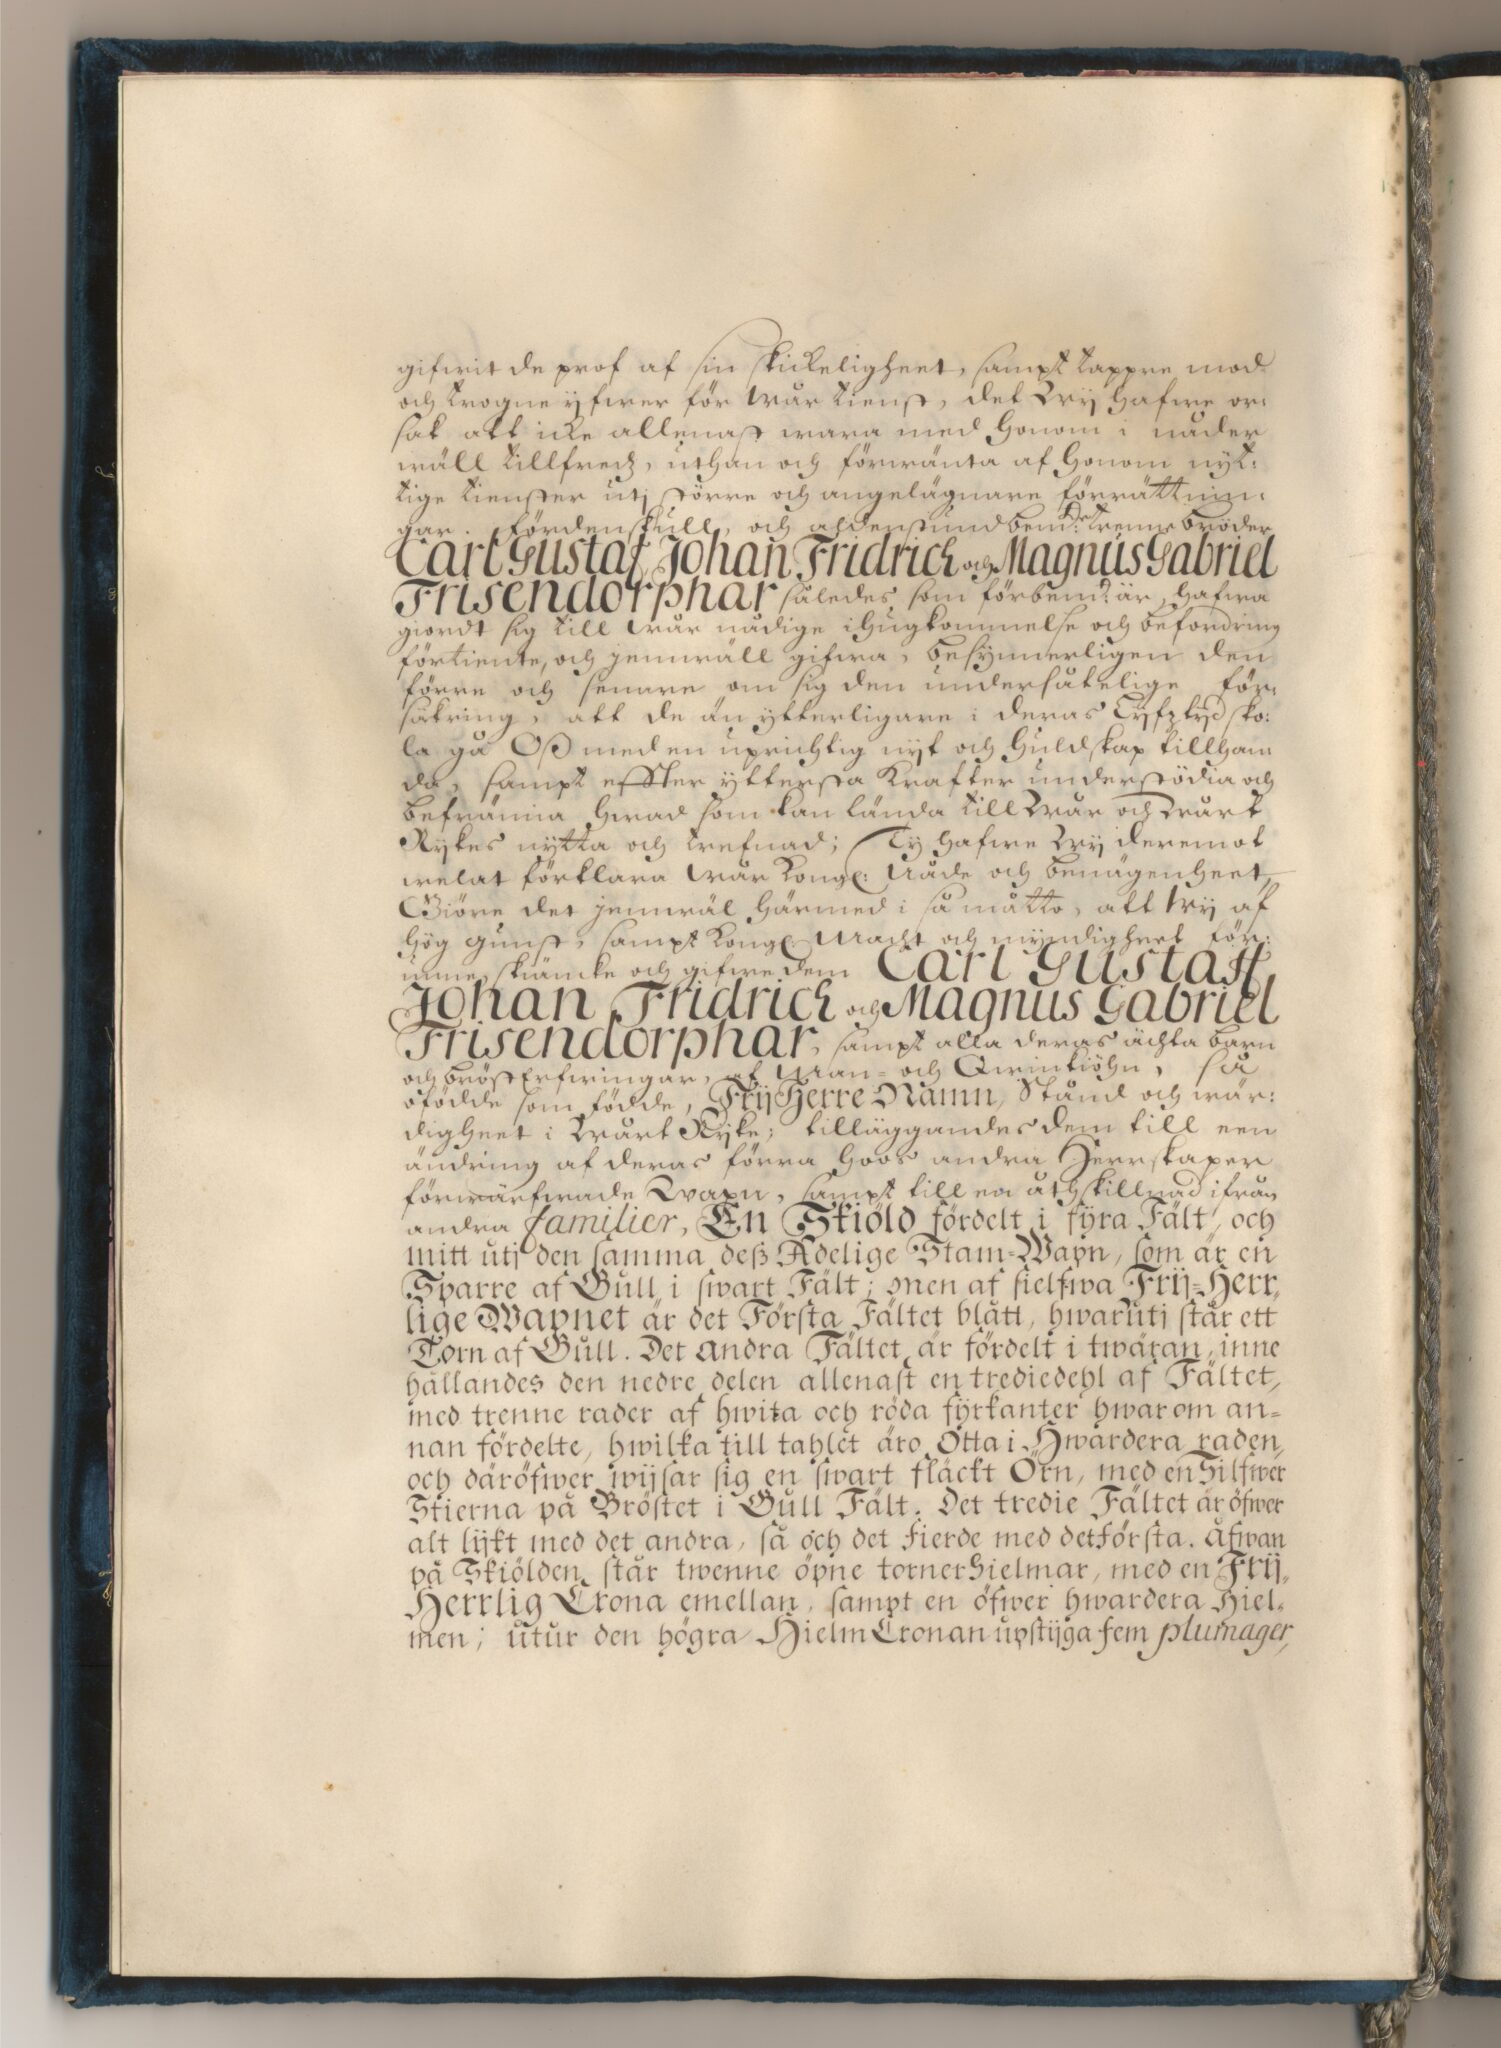 gifwit de prof af sin skickeligheet, sampt tappre mod
och trogne yfwer för wår tienst, det Wij hafwe or:
sak att icke allenast wara med honom i nåder
wäll tillfredz, uthan och förwänta af honom nyt:
tige tienster utj större och angelägnare förrättnin:
gar. Fördenskull, och aldenstund bem:de trenne bröder
Carl Gustaf, Johan Fridrich och Magnus Gabriel
Frisendorphar således, som förbem:t är, hafwa
giordt sig till wår nådige ihugkommelse och befordring
förtiente, och jemwäll gifwa, besynnerligen den
förre och senare om sig den undersåtelige för:
säkring, att de än ytterligare i deras Lyfztyd sko:
la gå Oß med en uprichtig nyt och huldskap tillhan
da, sampt effter yttersta krafter understödia och
befrämia hwad som kan lända till Wår och Wårt
Rykes nytta och trefnad; Ty hafwe Wij deremot
welat förklara Wår Kongl: Nåde och benägenheet,
Giöre det jemwäl härmed i så måtto, att Wij af
hög gunst, sampt Kongl. Macht och myndigheet för:
unne, skiäncke och gifwe dem Carl Gustaff,
Johan Fridrich och Magnus Gabriel
Frisendorphar, sampt alla deras ächta barn
och bröst Erfwingar, af Man- och Qwinkiöhn, så
ofödde som födde, Frij Herre Namn, Stånd och wär:
digheet i Wårt Ryke; tilläggandes dem till een
ändring af deras förra hoos andra Herrskaper
förwärfwade Wapn, sampt till en åthskillnad ifrån
andra familier, En Skiöld fördelt i fyra Fält, och
mitt utj den samma deß Adelige Stam-Wapn, som är en
Sparre af Gull i swart Fält; men af sielfwa Frij-Herr-
lige Wapnet är det Första Fältet blått, hwarutj står ett
Torn af Gull. Det Andra Fältet är fördelt i twäran, inne
hållandes den nedre delen allenast en trediedehl af Fältet,
med trenne rader af hwita och röda fyrkanter hwar om an-
nan fördelte, hwilka till tahlet äro Otta i Hwardera raden,
och däröfwer wijsar sig en swart fläckt Örn, med en Silfwer
Stierna på Bröstet i Gull Fält. Det tredie Fältet är öfwer
alt lijkt med det andra, så och det Fierde med det Första. Åfwan
på Skiölden står twenne öpne tornerhielmar, med en Frij-
Herrlig Crona emellan, sampt en öfwer hwardera Hiel-
men; utur den högra Hielm Cronan upstijga fem plumager,